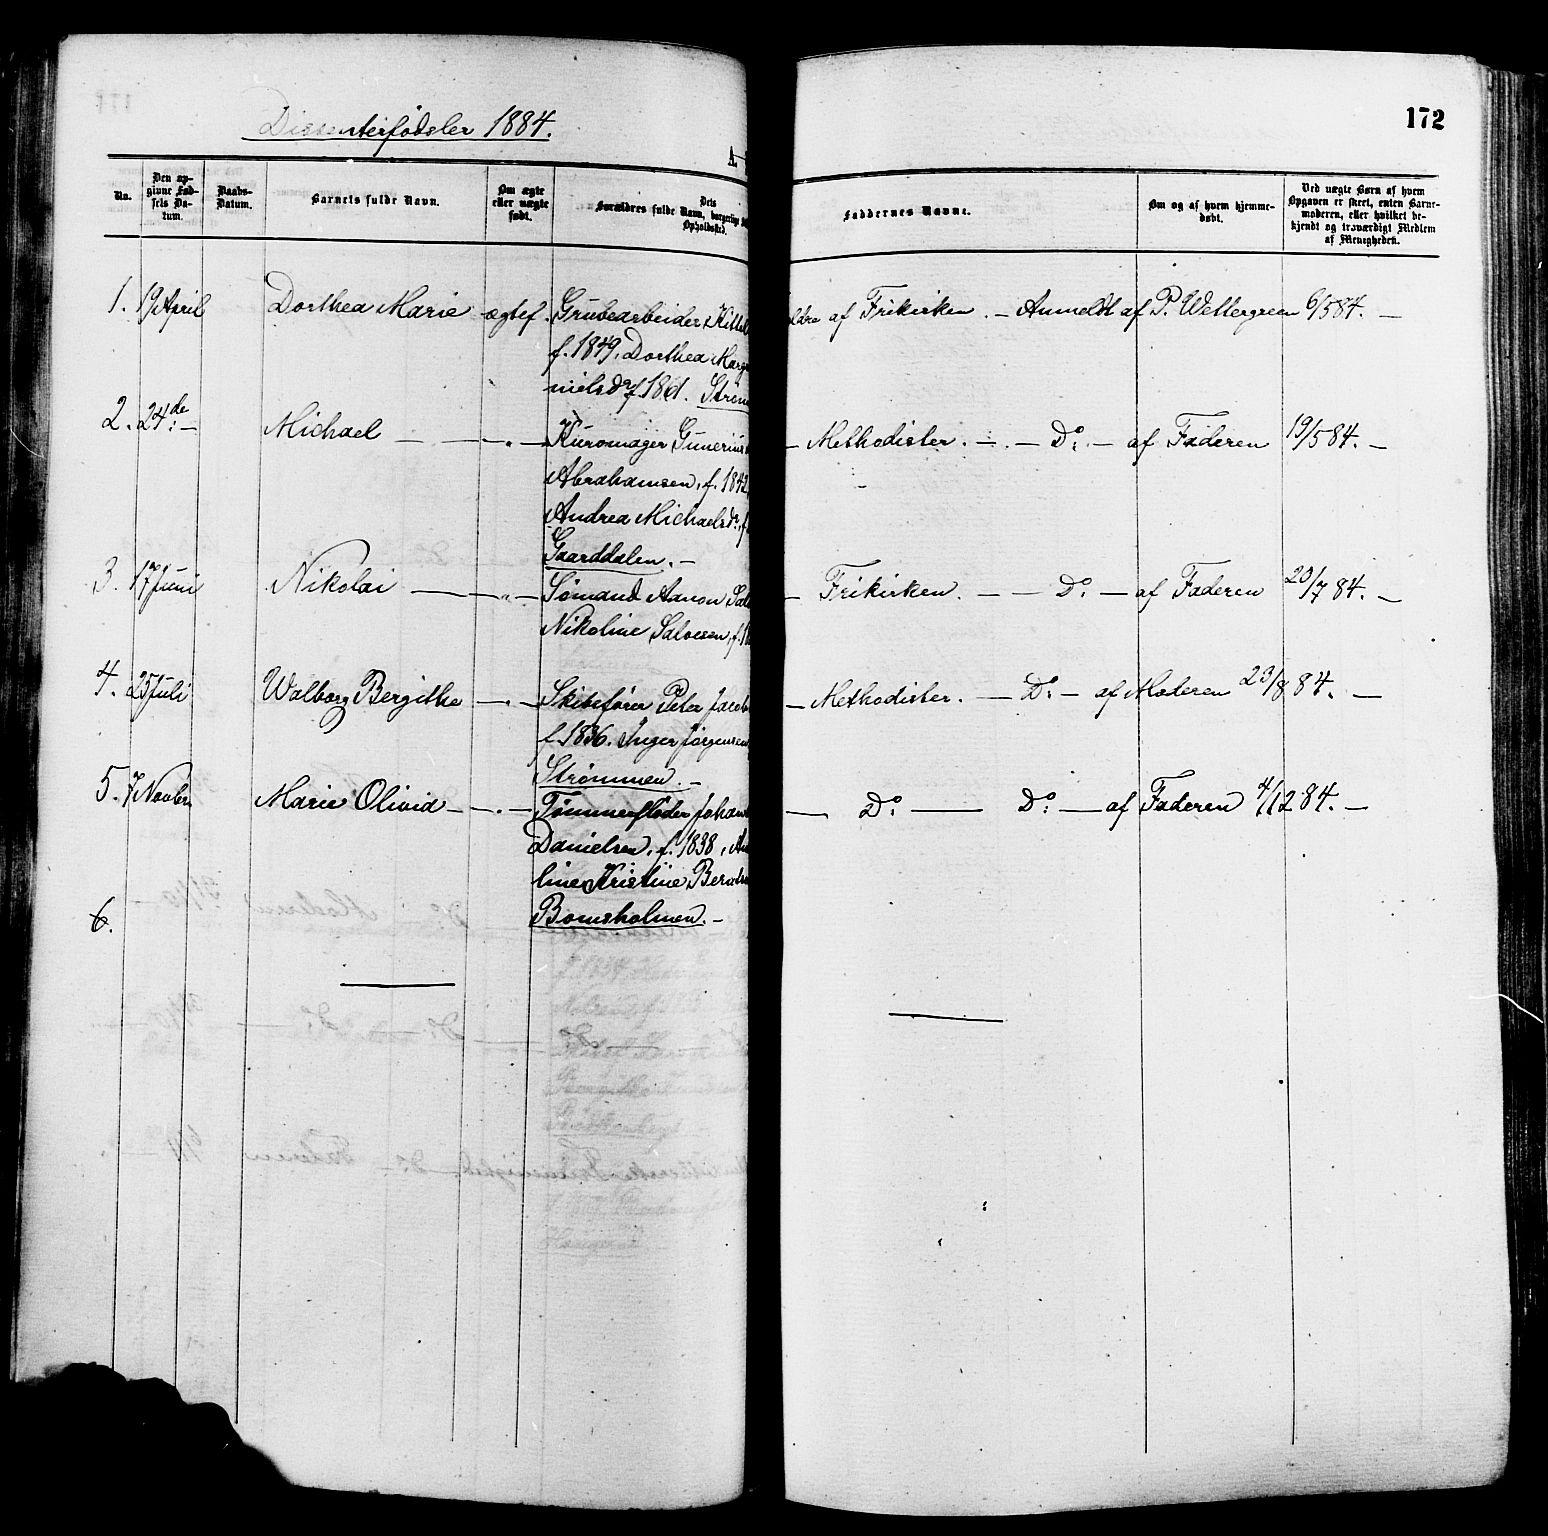 Dissenterfødsler 1884.
172
No.
Den op-
givne Fød-
sels Da-
tum.
Daabs-
Datum.
Barnets fulde Navn.
Om ægte
eller uægte
født.
Dets
Forældres fulde Navn, borgerlige
Opholdssted.
Faddernes Navne.
Om og af hvem hjemme-
døbt.
Ved uægte Børn af hvem
Opgaven er skeet, enten Barne-
moderen, eller hvilket be-
kjendt og troværdigt Medlem
af Menigheden.
1. 19 April Dorthea Marie ægtef. Grubearbeider Kittel
f. 1849, Dorthea Marg
nielsdr f. 1861. Strøm
af Frikirken. — Anmeldt af P. Wettergreen 6/5 84. —
2. 24de — Michael — — " — Kuromager Gunerius
Abrahamsen, f. 1842,
Andrea Michaelsdr., f
Gaarddalen. —
— Methodister. — . — Do: — af Faderen 19/5 84. —
3. 17 Juni Nikolai — " — Sømand Aanon Sal
Nikoline Salvesen, f. 1
— Frikirken. — — Do: — af Faderen 20/7 84. —
4. 25 Juli Walborg Bergithe — " — Skibsfører Peter Jacob
f. 1836. Inger Jørgensen,
Strømmen. —
— Methodister. — Do: — af Moderen 23/8 84. —
5. 7 Novbr. Marie Olivia — . — Tømmerfløder Johan
Danielsen, f. 1838, An
line Kristine Berntsen
Bomsholmen. —
— Do: — Do: — af Faderen 4/12 84. —
6.